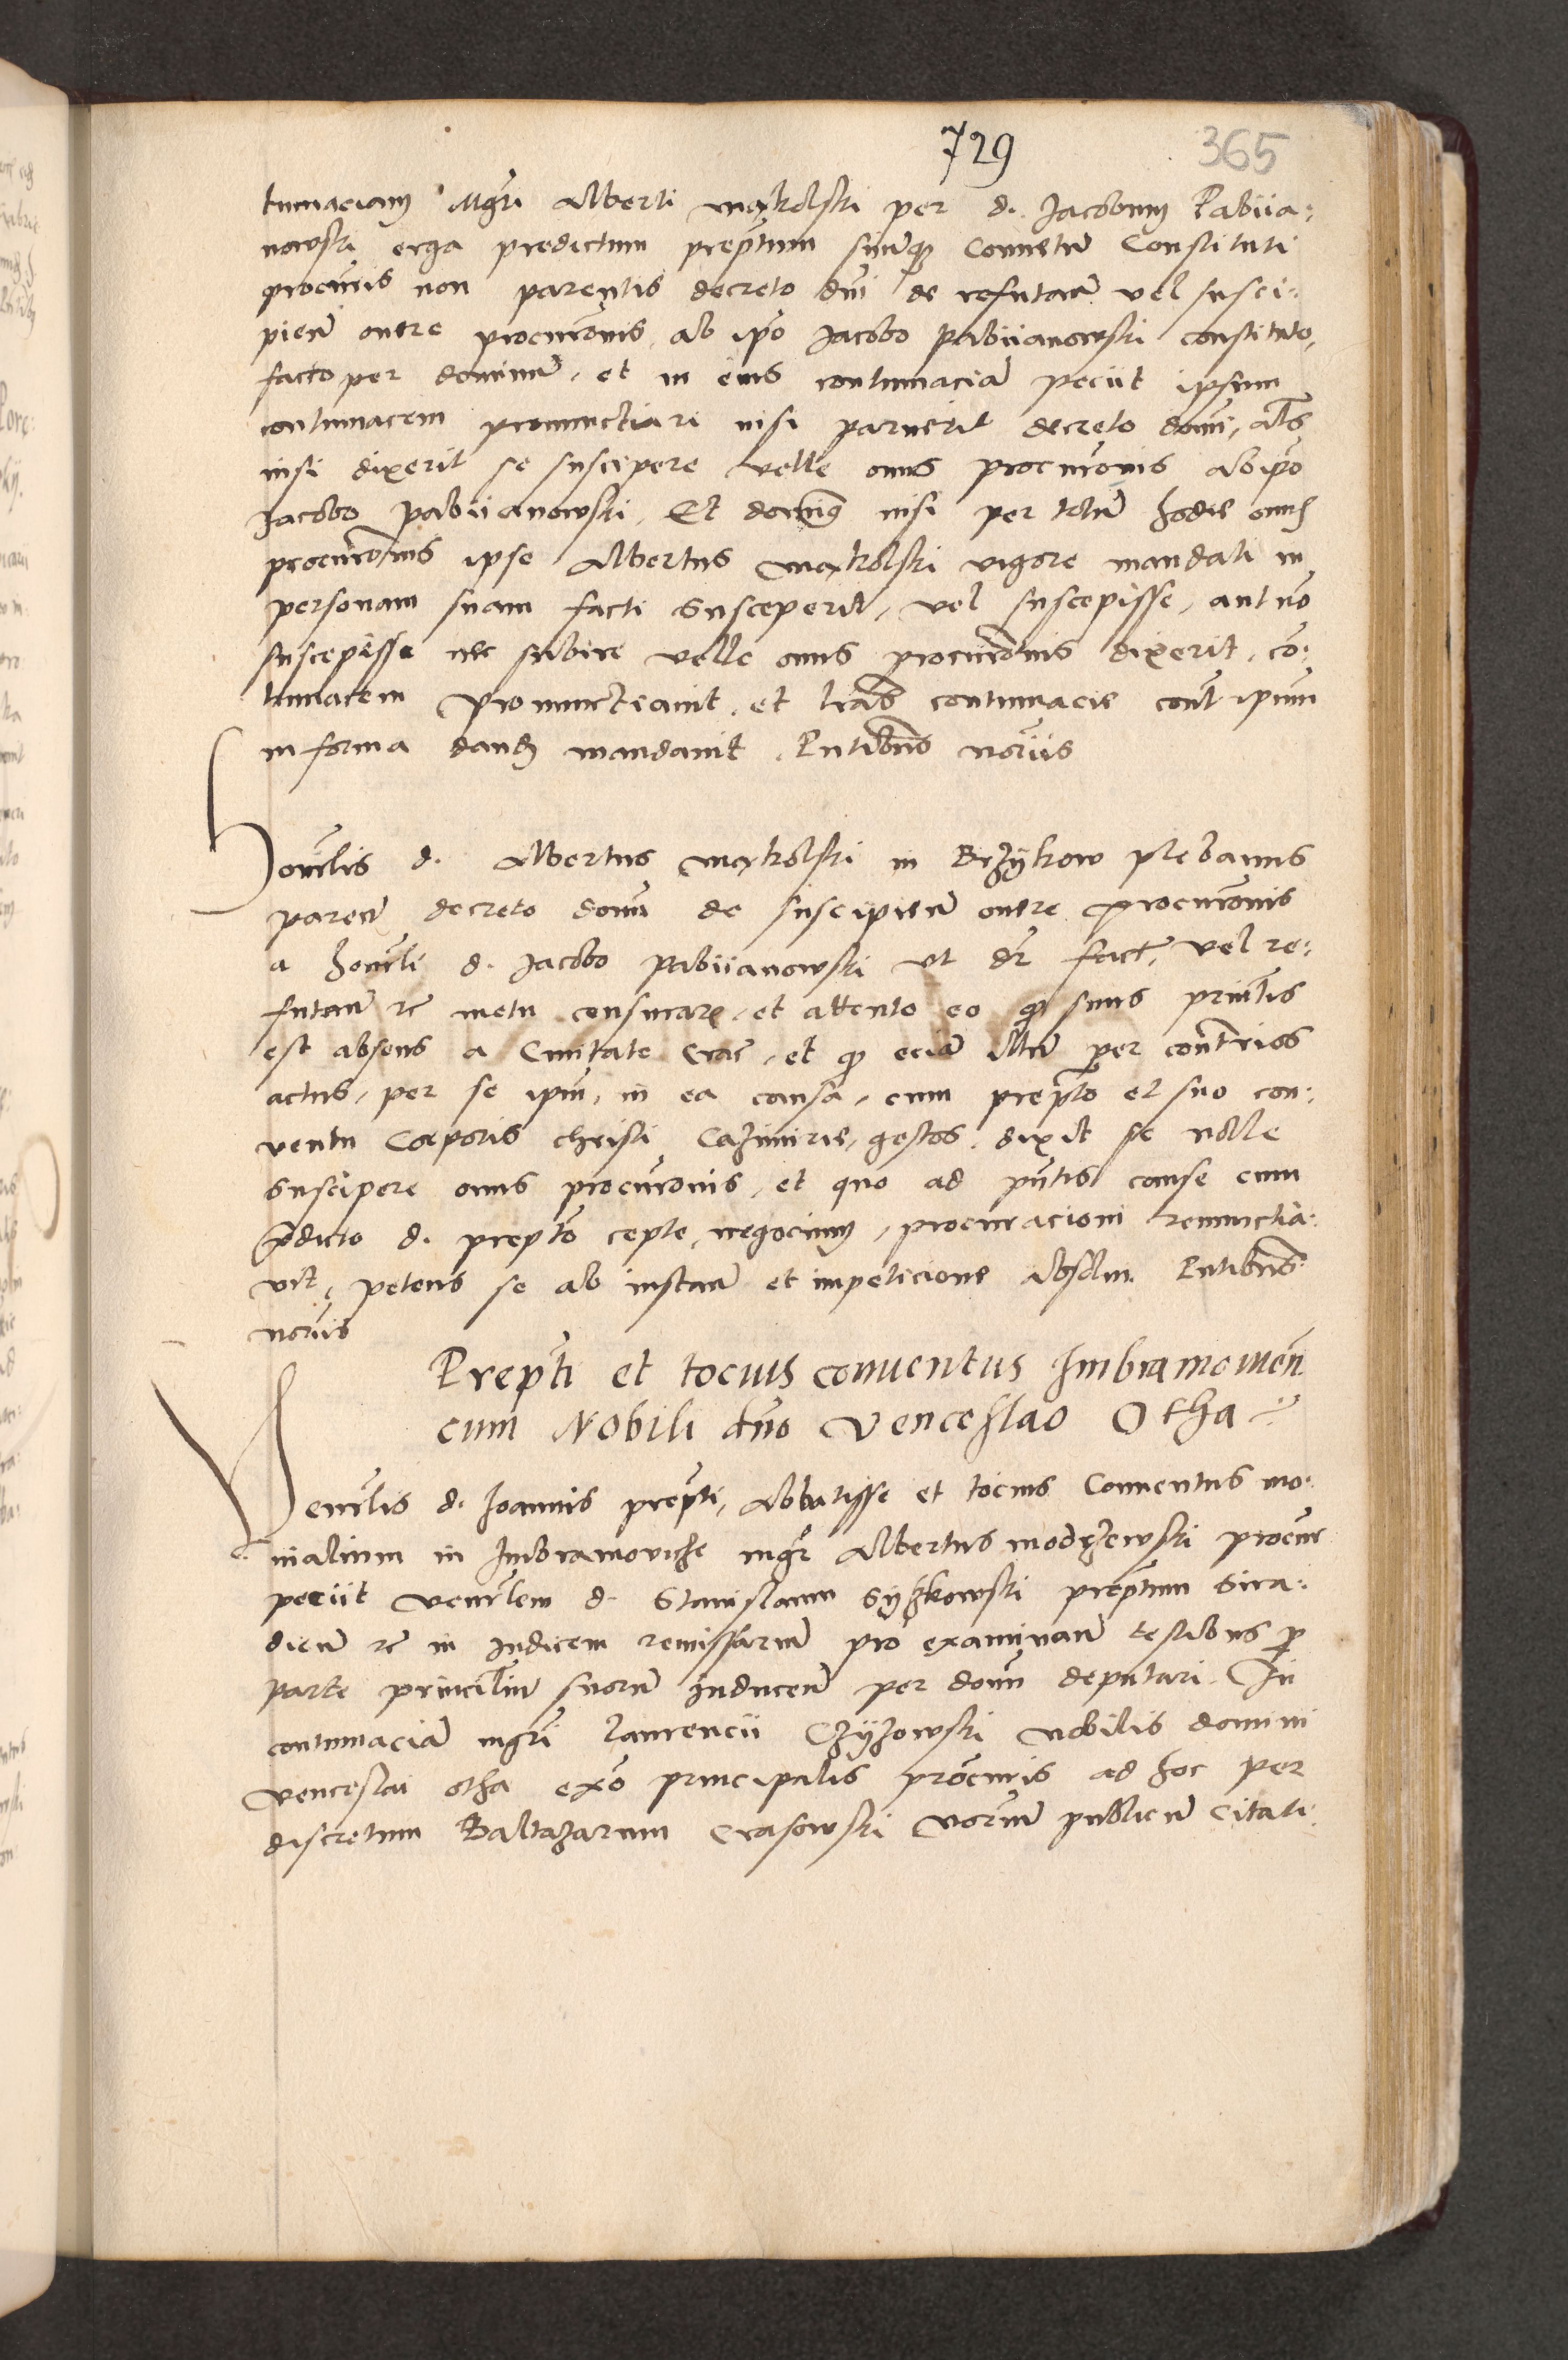 729 365
tumaciam Mgri Alberti makolski per d. Jacobum Pabiia:
nowski erga predictum preptum suumq Conuetum Constituti
procuris non parentis decreto dni de refutan vel susci:
pien onere procuronis ab ipo Jacobo Pabiianowski constituto,
facto per dominum, et in eius contumaciam peciit ipsum
contumacem pronunctiari nisi paruerit decreto domi, als
nisi dixerit se suscipere velle onus procuronis ab ipo
Jacobo Pabiianowski. Et domin9 nisi per totum hodie onus
procuronis ipse Albertus makolski vigore mandati in
personam suam facti susceperit, vel suscepisse, aut no
suscepisse nec subire velle onus procuronis dixerit, co:
tumacem pronunctiauit, et lras contumacie cont ipsum
in forma dand mandauit. Pntibus notriis
Honorlis d. Albertus makolski in Brzykow plebanus
paren decreto domi de suscipien onere procuronis
a honorli d. Jacobo Pabiianowski vt dr fact, vel re:
futan rc metu censurar, et attento eo q suus principlis
est absens a Ciuitate Crac, et q eciam illum per contrios
actus, per se ipum, in ea causa, cum prepto et suo con:
ventu Corporis christi Cazimirie, gestos, dixit se nolle
suscipere onus procuronis, et quo ad pntis cause cum
pdicto d. prepto cepte, negocium, procuracioni renunctia:
vit, petens se ab instan et impeticione absolui. Pntibus
notriis
Prepti et tocius conuentus Imbramouien
cum Nobili dno Venceslao Otha
Venerlis d. Joannis prepti, Abbatisse et tocius Conuentus mo:
nialium in Imbramouicze mgr Albertus modrzewski procur
peciit venerlem d. Stanislaum Syszkowski preptum Sira:
dien rc in Judicem remissarium pro examinan testibus p
parte principlium suorum inducen per domi deputari. In
contumaciam mgri Laurencii Czyzowski nobilis domini
Venceslai Otha ex9o principalis procuris ad hoc per
discretum Baltazarum Crasowski notrium publicum citati.